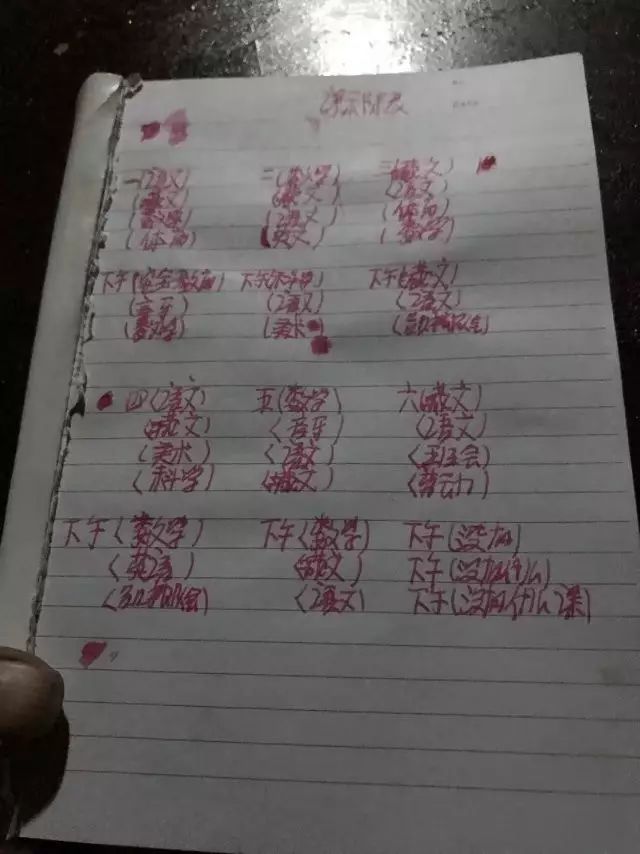 一(语文) 二(数学) 三(藏文)
(藏文) (藏文) (语文)
(数学) (语文) (体育)
(体育) (英文) (数学)
下午(安全教育) 下午( 下午(藏文)
(音乐) (语文) (语文)
(数学) (美术) (
四(语文) 五(数学) 六(藏文)
(藏文) (音乐) (语文)
(美术) (语文) (班会)
(科学) (藏文) (劳动)
下午(数学) 下午(数学) 下午(没有)
(英语) (藏文) 下午(没有什么)
( (语文) 下午(没有什么课)